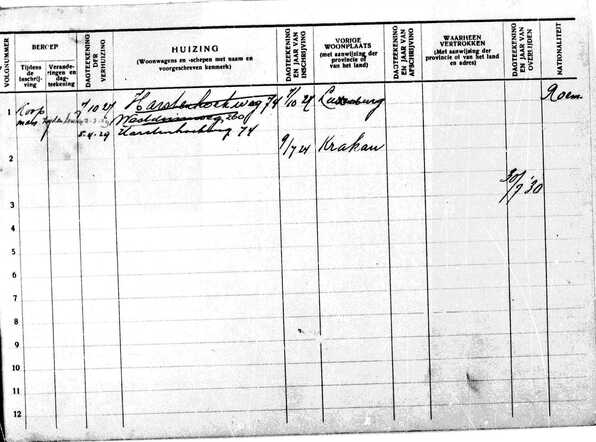 VOLGNUMMER
BEROEP
Tijdens de beschrijving
Veranderingen en dagteekening
DAGTEEKENING DER VERHUIZING
HUIZING
(Woonwagens en -schepen met naam en voorgeschreven kenmerk)
DAGTEEKENING EN JAAR VAN INSCHRIJVING
VORIGE WOONPLAATS
(met aanwijzing der provincie of van het land)
DAGTEEKENING EN JAAR VAN AFSCHRIJVING
WAARHEEN VERTROKKEN
(Met aanwijzing der provincie of van het land en adres)
DAGTEEKENING EN JAAR VAN OVERLIJDEN
NATIONALITEIT
1 Koop 7/10 27 Harstenhoekweg 74 7/10 27 Luxemburg Roem.
mans
5.4.29 Harstenhoekweg 74
2 9/7 24 Krakau
3 30/7 '30
4
5
6
7
8
9
10
11
12